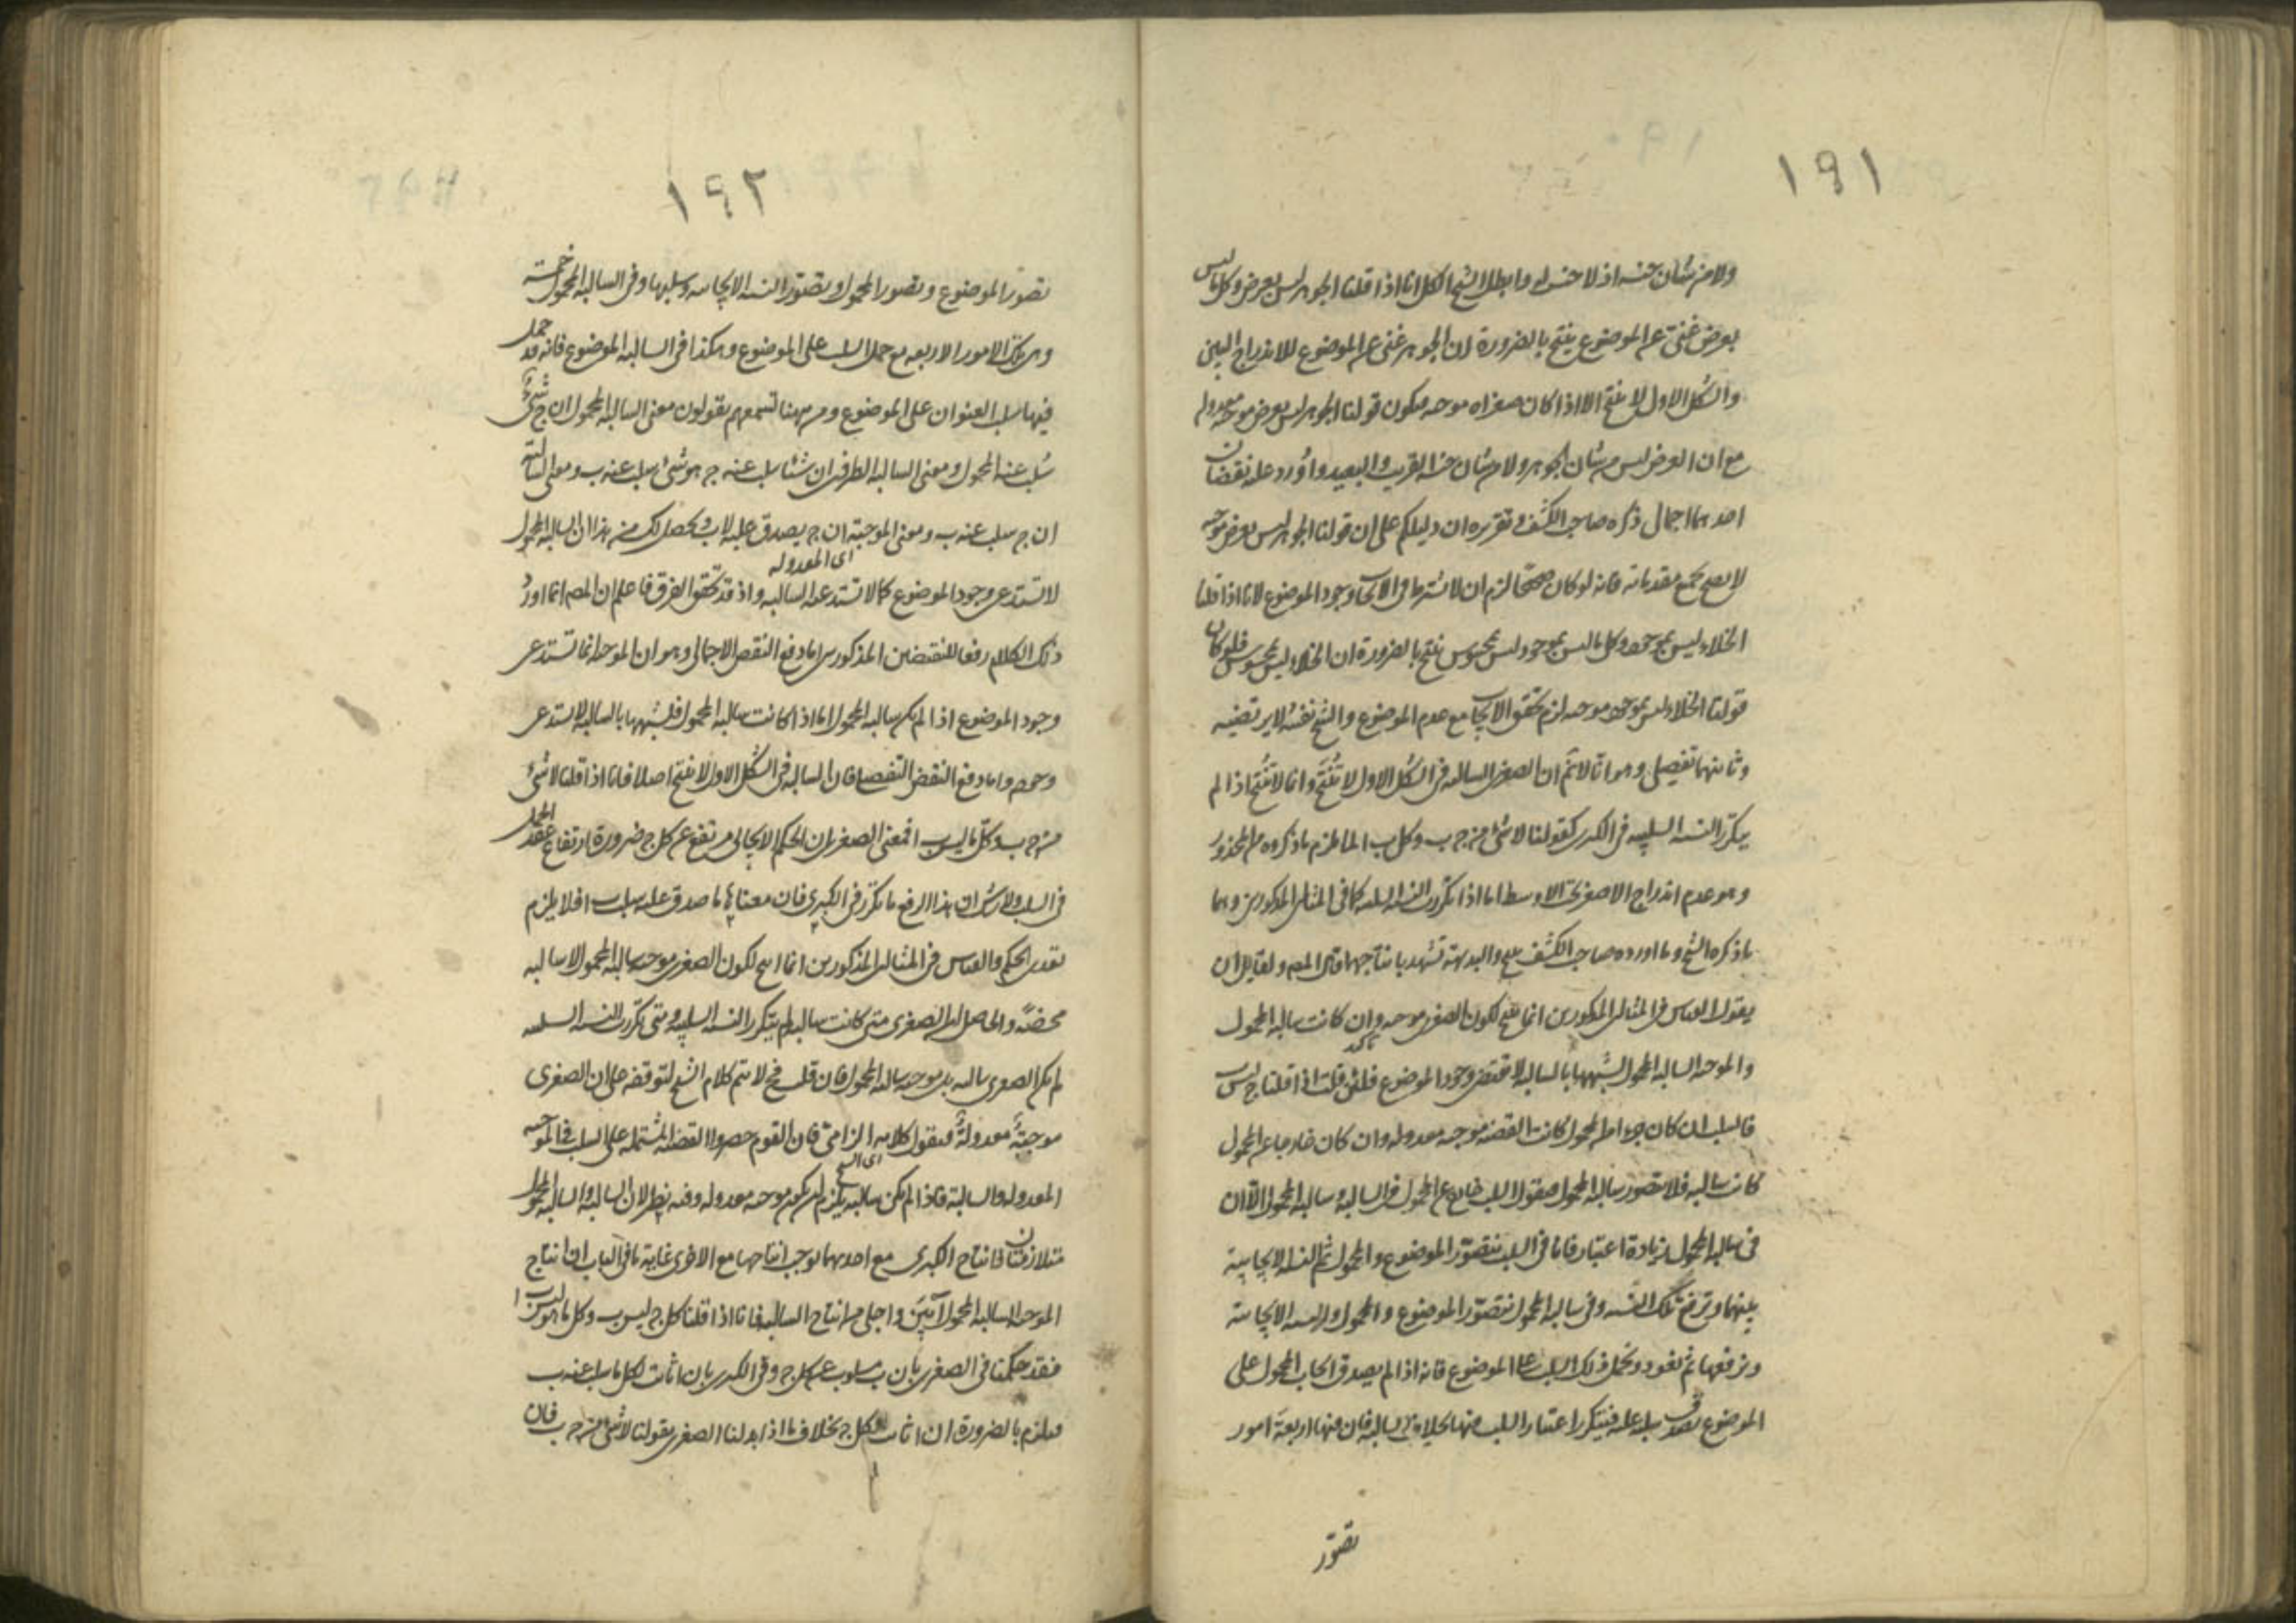 ١٩١
ولا من شأن جنسه اذ لا جنس له وابطل الشيخ الكل انا اذا قلنا الجوهر ليس بعرض وكل ما ليس
بعرض غنى عن الموضوع ينتج بالضرورة ان الجوهر غنى عن الموضوع للاندراج البين
والشكل الاول لا ينتج الا اذا كان صغراه موجبة فيكون قولنا الجوهر ليس بعرض موجبة معدولة
مع ان العرض ليس من شأن الجوهر ولا من شأن جنسه القريب والبعيد واورد عليه نقضان
احدهما اجمالى ذكره صاحب الكشف وتقريره ان دليلكم على ان قولنا الجوهر ليس بعرض موجبة
لا يصح بجميع مقدماته فانه لو كان صحيحا لزم ان لا يشترط فى الايجاب وجود الموضوع لانا اذا قلنا
الخلاء ليس بموجود وكل ما ليس بموجود ليس بمحسوس ينتج بالضرورة ان الخلاء ليس بمحسوس فلو كان
قولنا الخلاء ليس بموجود موجبة لزم تحقق الايجاب مع عدم الموضوع والشيخ نفسه لا يرتضيه
وثانيهما تفصيلى وهو انا لا نم ان الصغرى السالبة فى الشكل الاول لا تنتج وانما لا تنتج اذا لم
يتكرر النسبة السلبية فى الكبرى كقولنا لا شئ من ج ب وكل ب ا لما لزم ما ذكروه من المحذور
وهو عدم اندراج الاصغر تحت الاوسط اما اذا تكررت النسبة السلبية كما فى المثالين المذكورين وهما
ما ذكره الشيخ وما اورده صاحب الكشف ينتج والبديهة تشهد بانتاجهما قال المص ولقايل ان
يقول القياس فى المثالين المذكورين انما ينتج لكون الصغرى موجبة وان كانت سالبة المحمول
والموجبة السالبة المحمول لشبهها بالسالبة لا تقتضى وجود الموضوع فلئن قلت اذا قلنا ج ليس ب
فالسلب ان كان جزءا من المحمول كانت القضية موجبة معدولة وان كان خارجا عن المحمول
كانت سالبة فلا تتصور سالبة المحمول فنقول السلب خارج عن المحمول فى السالبة وسالبة المحمول الا ان
فى سالبة المحمول زيادة اعتبار فانا فى السلب نتصور الموضوع والمحمول ثم النسبة الايجابية
بينهما ونرفع تلك النسبة وفى سالبة المحمول نتصور الموضوع والمحمول والنسبة الايجابية
ونرفعها ثم نعود ونحمل ذلك السلب على الموضوع فانه اذا لم يصدق ايجاب المحمول على
الموضوع يصدق سلبه عليه فيتكرر اعتبار السلب فيها بخلاف السالبة فان فيها اربعة امور
تصور
١٩٢
تصور الموضوع وتصور المحمول وتصور النسبة الايجابية وسلبها وفى السالبة المحمول خمسة
وهى تلك الامور الاربعة مع حمل السلب على الموضوع وهكذا فى السالبة الموضوع فانه قد حمل
فيها سلب العنوان على الموضوع ومن ههنا تسمعهم يقولون معنى السالبة المحمول ان ج شئ
سلب عنه المحمول ومعنى السالبة الطرفين ان شيئا سلب عنه ج هو شئ سلب عنه ب ومعنى السالبة
ان ج سلب عنه ب ومعنى الموجبة ان ج يصدق عليه لا ب ويحصل لك من هذا ان السالبة المحمول
اى المعدولة
لا تستدعى وجود الموضوع كما لا تستدعيه السالبة واذ قد تحقق الفرق فاعلم ان المص انما اورد
ذلك الكلام رفعا للنقضين المذكورين اما دفع النقض الاجمالى وهو ان الموجبة انما تستدعى
وجود الموضوع اذا لم يكن سالبة المحمول اما اذا كانت سالبة المحمول فلشبهها بالسالبة لا تستدعى
وجوده واما دفع النقض التفصيلى فلان السالبة فى الشكل الاول لا تنتج اصلا فانا اذا قلنا لا شئ
من ج ب وكل ما ليس ب ا فمعنى الصغرى ان الحكم الايجابى مرتفع عن كل ج ضرورة ارتفاع عقد الحمل
فى السلب ولا شك ان هذا الرفع ما تكرر فى الكبرى فان معناها ما صدق عليه سلب ب ا فلا يلزم
تعدى الحكم والقياس فى المثالين المذكورين انما انتج لكون الصغرى موجبة سالبة المحمول لا سالبة
محضة والحاصل ان الصغرى متى كانت سالبة لم يتكرر النسبة السلبية ومتى تكررت النسبة السلبية
لم يكن الصغرى سالبة بل موجبة سالبة المحمول فان قلت فح لا يتم كلام الشيخ لتوقفه على ان الصغرى
موجبة معدولة فنقول كلامه الزامى فان القوم حصروا القضية المشتملة على السلب فى الموجبة
المعدولة والسالبة فاذا لم تكن سالبة يلزم ان يكون موجبة معدولة وفيه نظر لان السالبة والسالبة المحمول
متلازمتان فانتاج الكبرى مع احديهما يوجب انتاجها مع الاخرى غاية ما فى الباب ان انتاج
الموجبة السالبة المحمول ابين واجلى من انتاج السالبة فانا اذا قلنا كل ج ليس ب وكل ما هو ليس ب ا
فقد حكمنا فى الصغرى بان ب مسلوب عن كل ج وفى الكبرى بان ا ثابت لكل ما سلب عنه ب
فيلزم بالضرورة ان ا ثابت لكل ج بخلاف ما اذا بدلنا الصغرى بقولنا لا شئ من ج ب فان